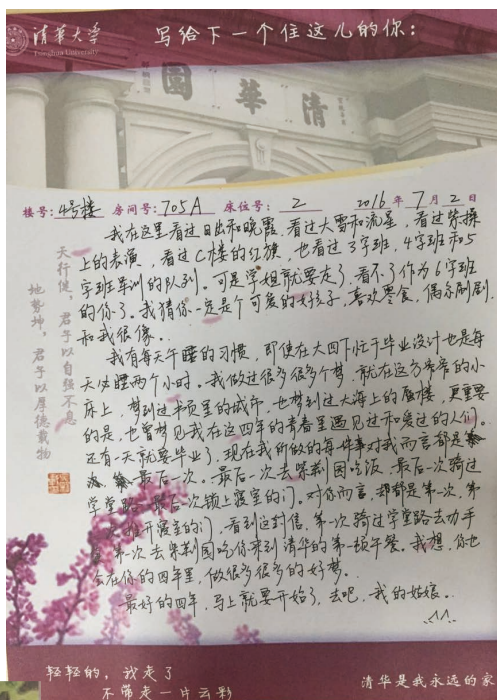 清华大学
Tsinghua University
写给下一个住这儿的你：
清华園
楼号：4号楼 房间号：705A 床位号：2 2016年7月2日
我在这里看过日出和晚霞，看过大雪和流星，看过紫操
上的表演，看过C楼的红旗，也看过3字班，4字班和5
字班军训的队列。可是学姐就要走了，看不了作为6字班
的你了。我猜你一定是个可爱的好孩子，喜欢零食，偶尔刷剧，
和我很像。
我有每天午睡的习惯，即使在大四下忙于毕业设计也是每
天炫睡两个小时。我做过很多很多个梦，就在这方窄窄的小
床上，梦到过书页里的城市，也梦到过大海上的蜃楼，更重要
的是，也曾梦见我在这四年的青春里遇见过和爱过的人们。
还有一天就要毕业了，现在我所做的每一件事对我而言都是
最后一次。最后一次去紫荆园吃饭，最后一次骑过
学堂路，最后一次锁上寝室的门。对你而言，却都是第一次，第
一次推开寝室的门，看到这封信，第一次骑过学堂路去
第一次去紫荆园吃你来到清华的第一顿午餐。我想，你也
会在你的四年里，做很多很多的好梦。
最好的四年，马上就要开始了，去吧，我的姑娘。
天行健，君子以自强不息
地势坤，君子以厚德载物
轻轻的，我走了
不带走一片云彩
清华是我永远的家